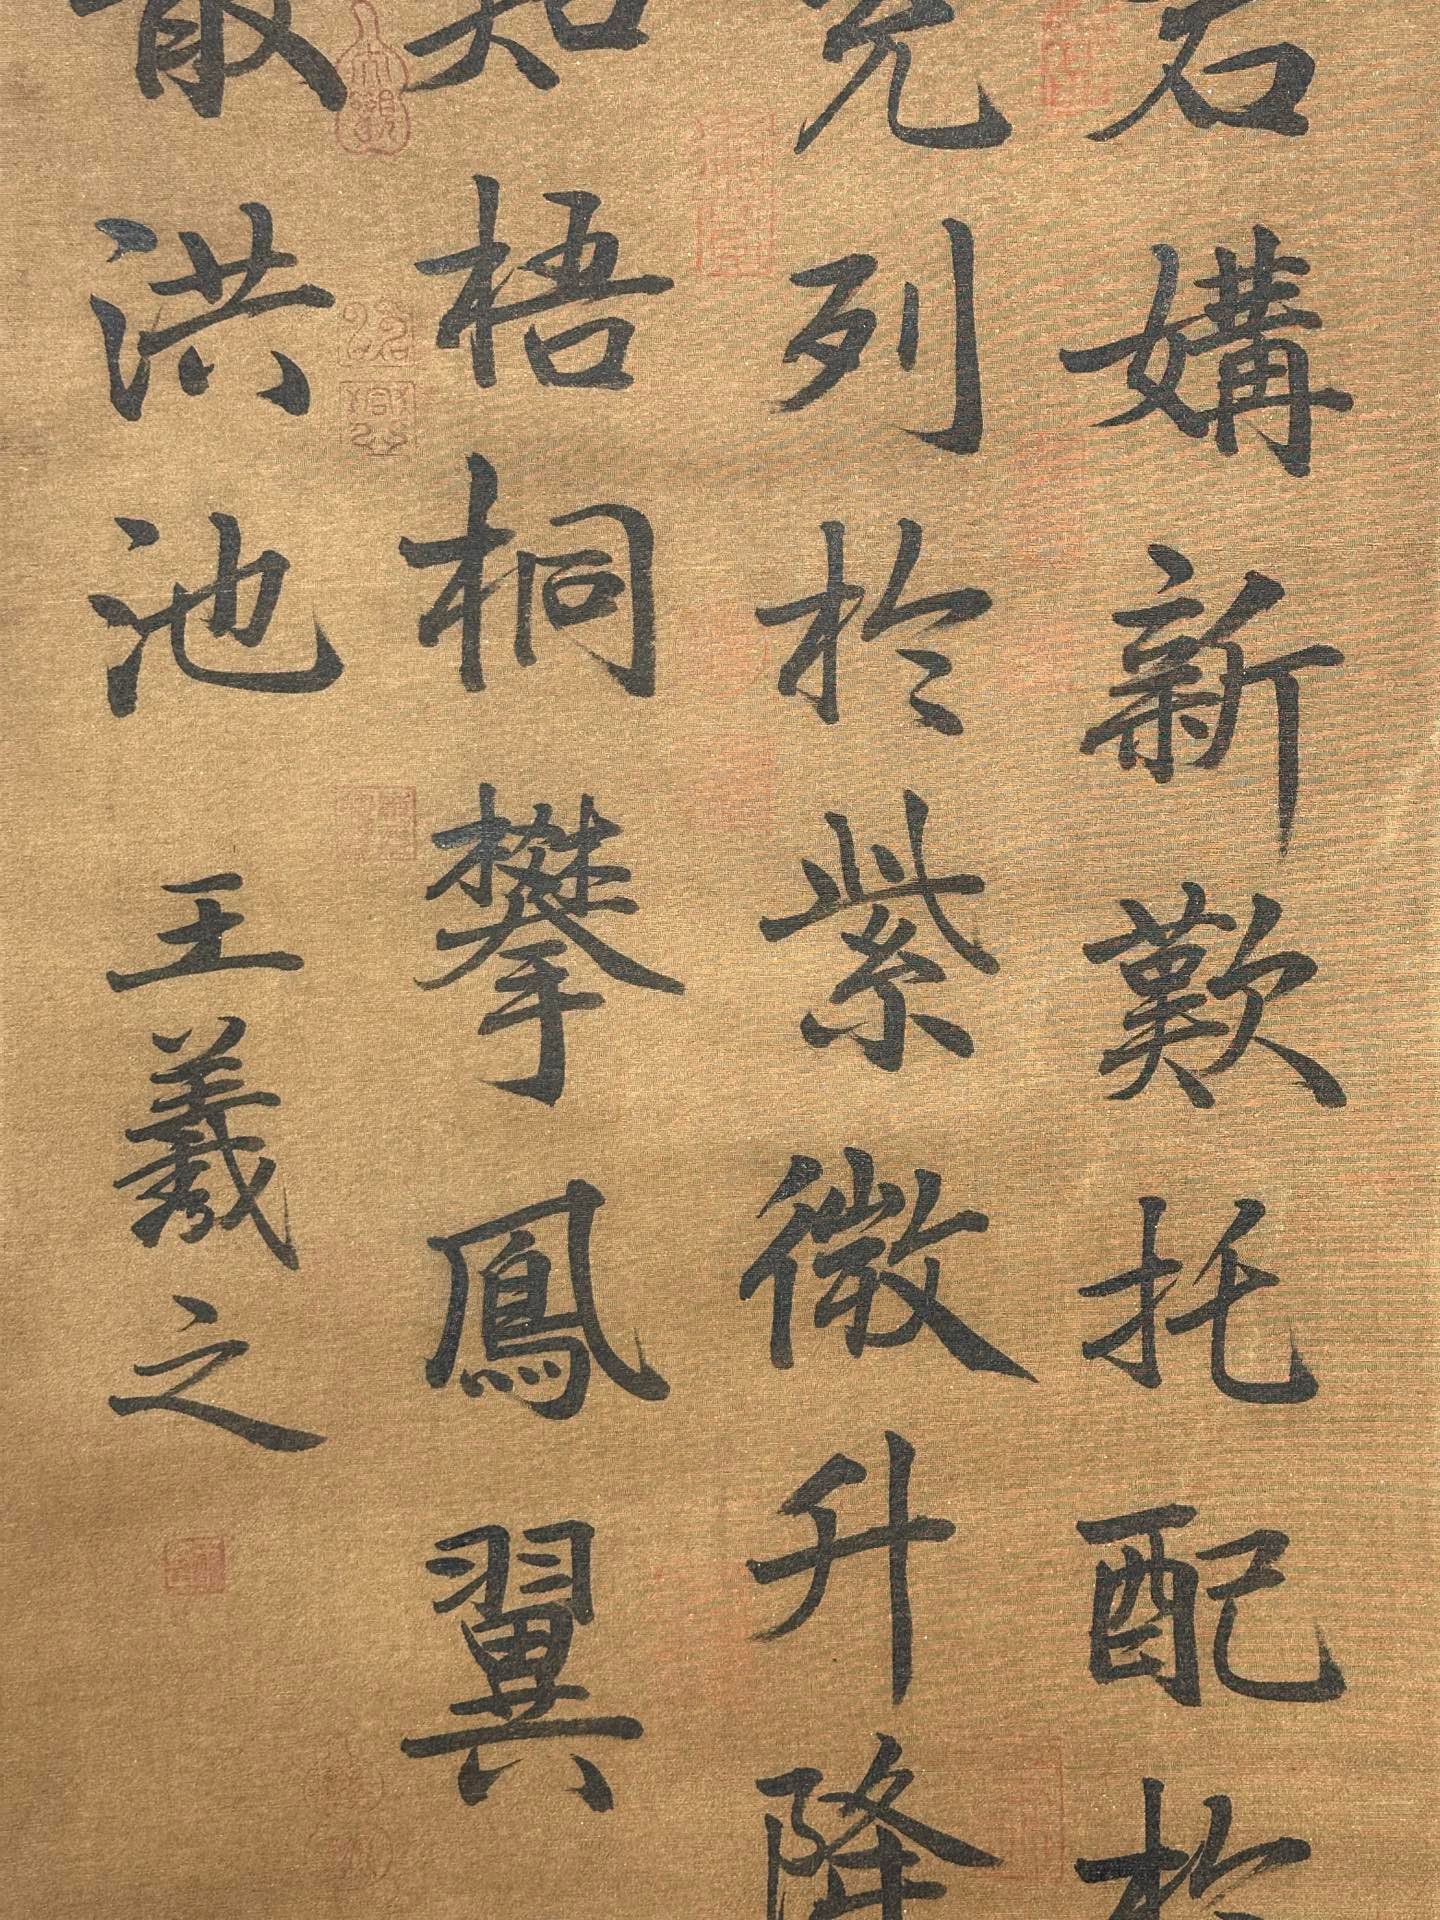 若媾新歎托配於
列於紫微升降
知梧桐攀鳳翼
散洪池王羲之